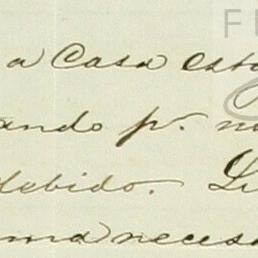 a Casa esto
ando pr. no
debido. Lu
ma necess